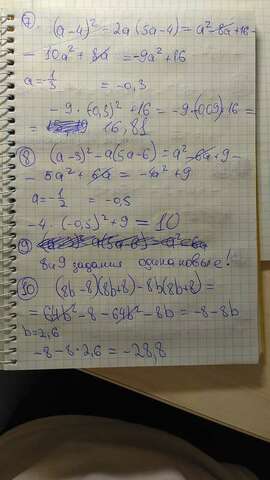 7. (a-4)² - 2a(5a-4) = a² - 8a + 16 -
- 10a² + 8a = -9a² + 16
a = -1/3 = -0,3
-9 · (-0,3)² + 16 = -9 · (0,09) · 16 =
= 16,81
8 (a-3)² - a(5a-6) = a² - 6a + 9 -
- 5a² + 6a = -4a² + 9
a = -1/2 = -0,5
-4 · (-0,5)² + 9 = 10
9
8 и 9 задания одинаковые!
10 (8b-8)(8b+8) - 8b(8b+8) =
= 64b² - 8 - 64b² - 8b = -8 - 8b
b = 2,6
-8 - 8 · 2,6 = -28,8